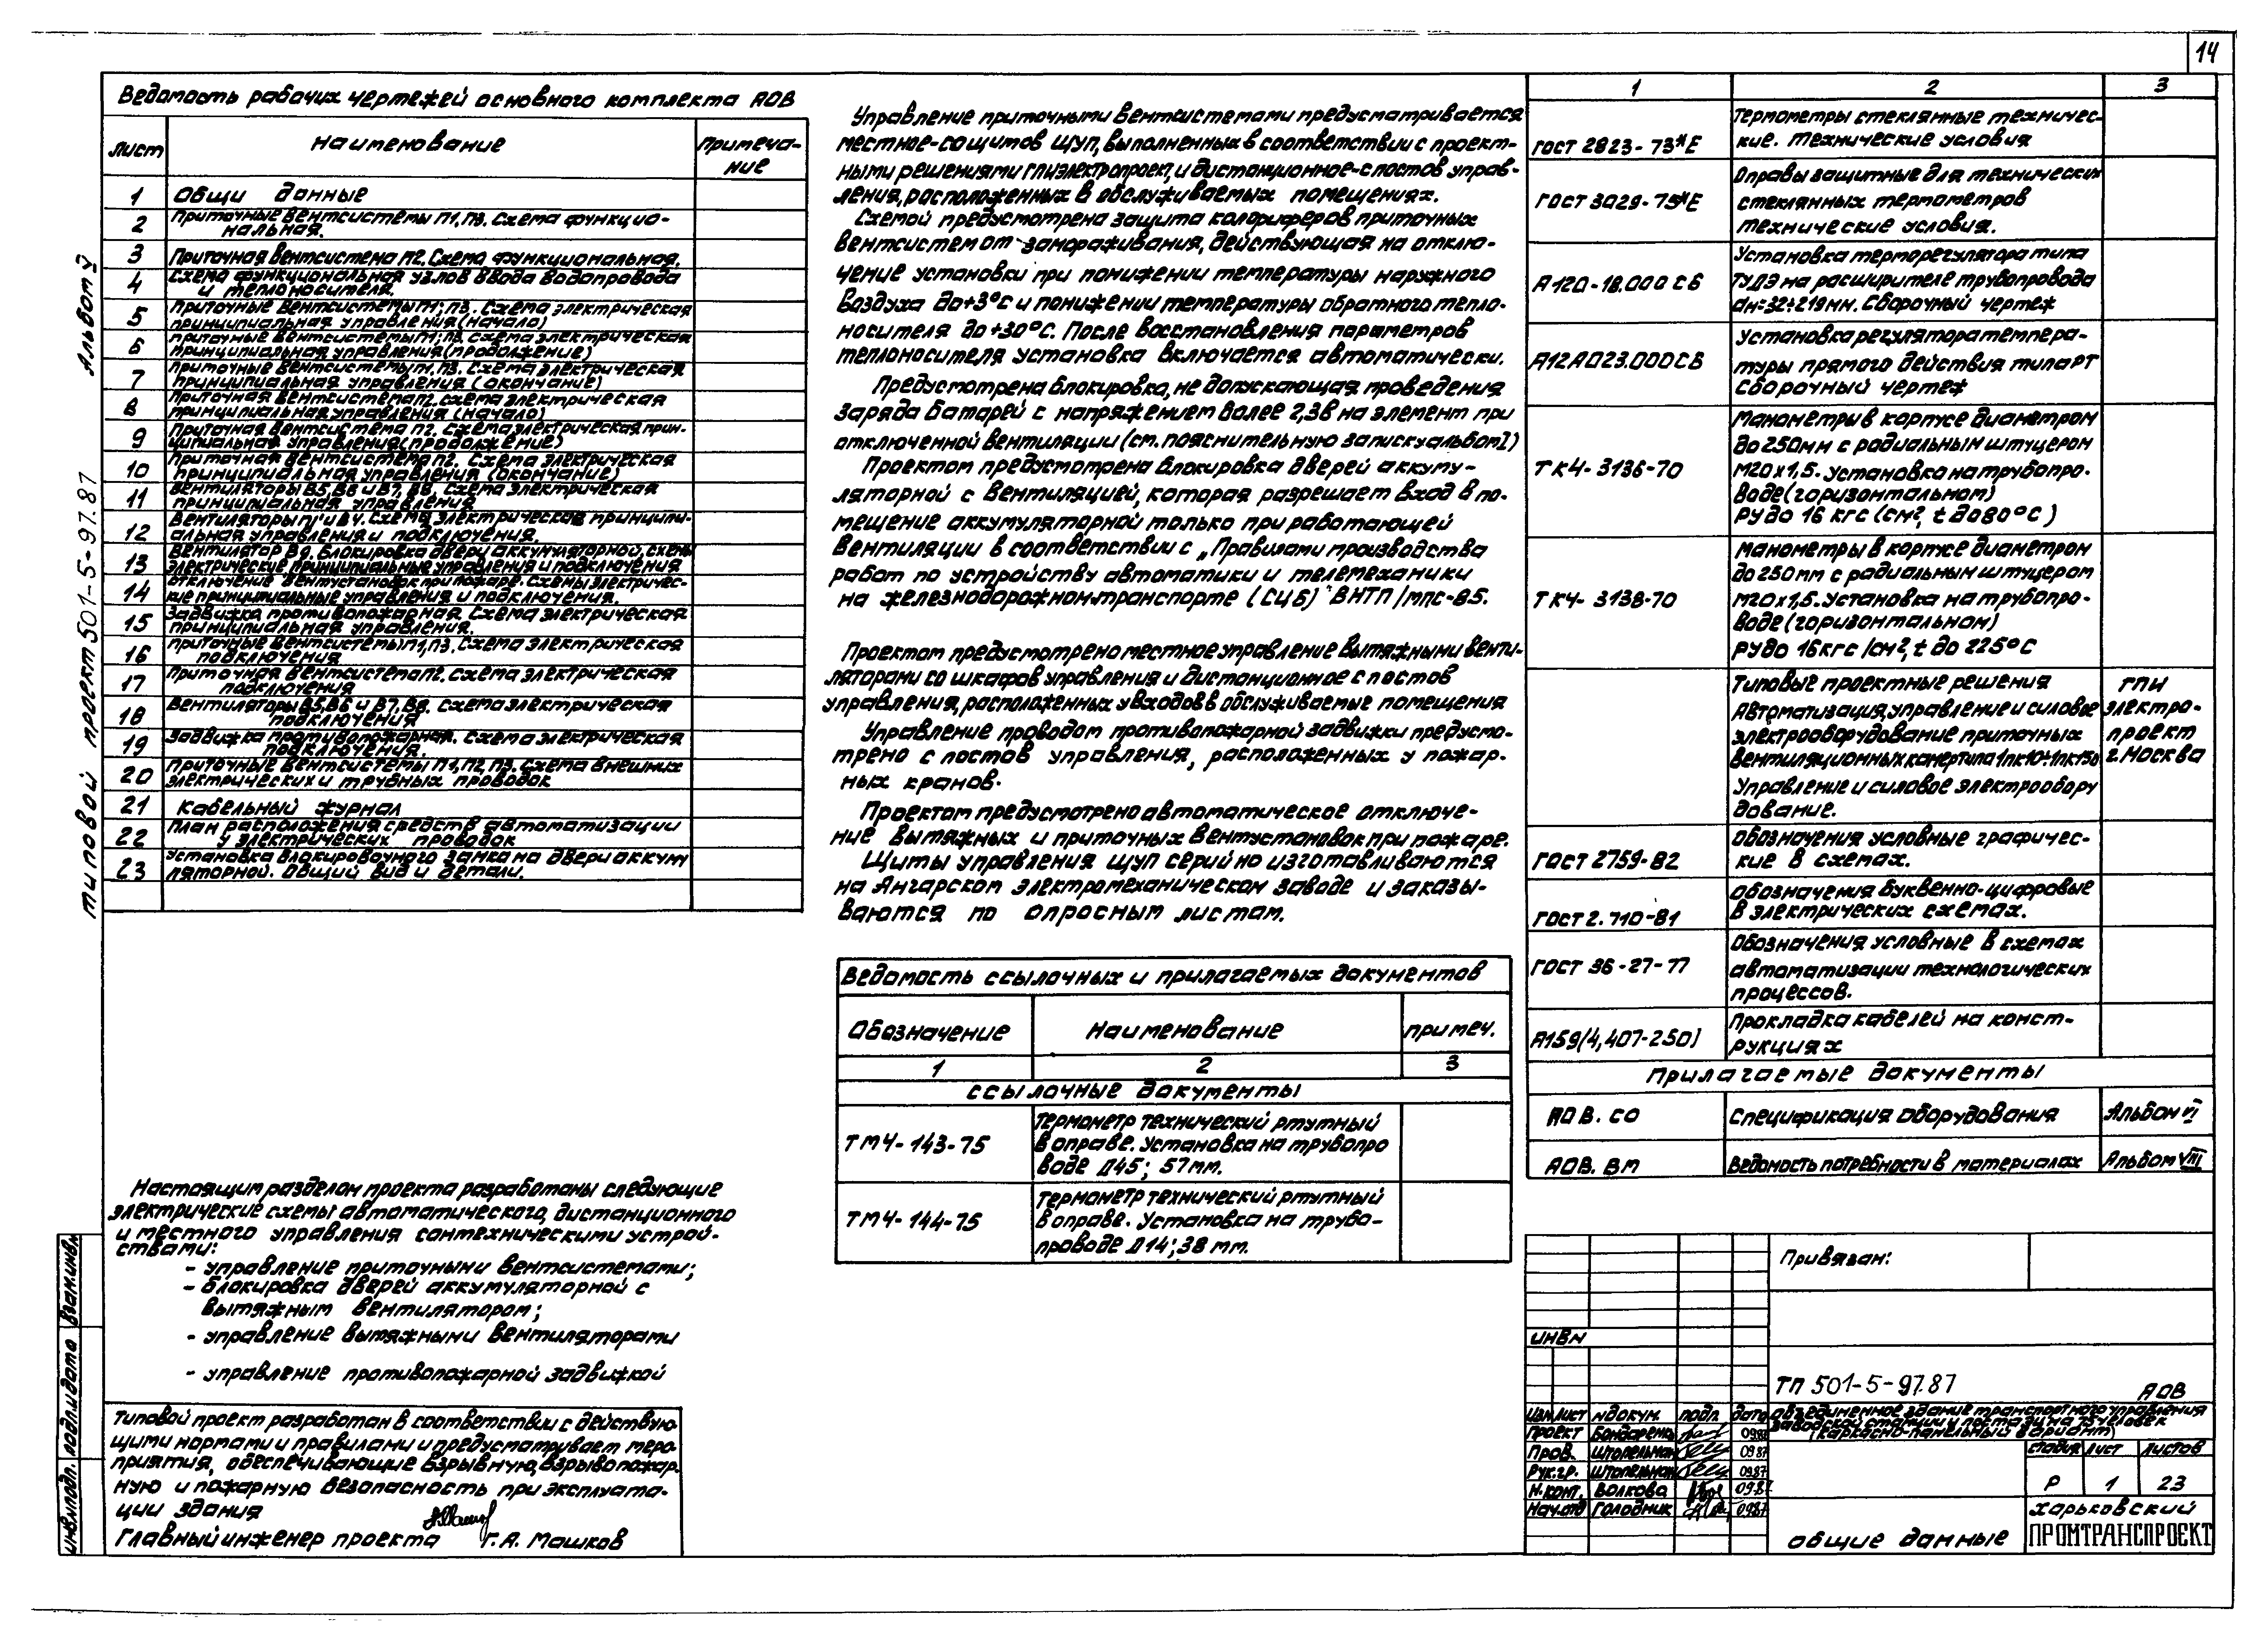 14
Ведомость рабочих чертежей основного комплекта АОВ
Лист Наименование Примеча-
ние
1 Общи данные
2 Приточные вентсистемы П1, П3. Схема функцио-
нальная.
3 Приточная вентсистема П2. Схема функциональная.
4 Схема функциональная узлов ввода водопровода
и теплоносителя.
5 Приточные вентсистемы П1; П3. Схема электрическая
принципиальная управления (начало)
6 Приточные вентсистемы П1; П3. Схема электрическая
принципиальная управления (продолжение)
7 Приточные вентсистемы П1, П3. Схема электрическая
принципиальная управления (окончание)
8 Приточная вентсистема П2. Схема электрическая
принципиальная управления (начало)
9 Приточная вентсистема П2. Схема электрическая прин-
ципиальная управления (продолжение)
10 Приточная вентсистема П2. Схема электрическая
принципиальная управления (окончание)
11 Вентиляторы В5, В6 и В7, В8. Схема электрическая
принципиальная управления
12 Вентиляторы П1' и В4. Схема электрическая принципи-
альная управления и подключения.
13 Вентилятор В9. Блокировка двери аккумуляторной. Схемы
электрические принципиальные управления и подключения
14 Отключение вентустановок при пожаре. Схемы электричес-
кие принципиальные управления и подключения.
15 Задвижка противопожарная. Схема электрическая
принципиальная управления.
16 Приточные вентсистемы П1, П3. Схема электрическая
подключения
17 Приточная вентсистема П2. Схема электрическая
подключения
18 Вентиляторы В5, В6 и В7, В8. Схема электрическая
подключения
19 Задвижка противопожарная. Схема электрическая
подключения.
20 Приточные вентсистемы П1, П2, П3. Схема внешних
электрических и трубных проводок
21 Кабельный журнал
22 План расположения средств автоматизации
и электрических проводок
23 Установка блокировочного замка на двери аккуму
ляторной. Общий вид и детали.
типовой проект 501-5-97.87 Альбом V
Настоящим разделом проекта разработаны следующие
электрические схемы автоматического, дистанционного
и местного управления сантехническими устрой-
ствами:
- управление приточными вентсистемами;
- блокировка дверей аккумуляторной с
вытяжным вентилятором;
- управление вытяжными вентиляторами
- управление противопожарной задвижкой
Типовой проект разработан в соответствии с действую
щими нормами и правилами и предусматривает меро
приятия, обеспечивающие взрывную, взрывопожар
ную и пожарную безопасность при эксплуата-
ции здания
Главный инженер проекта Г. А. Машков
инв.№подл. подп.и дата взам.инв.№
Управление приточными вентсистемами предусматривается
местное-со щитов ЩУП, выполненных в соответствии с проект-
ными решениями ГПИЭлектропроект, и дистанционное-с постов управ-
ления, расположенных в обслуживаемых помещениях.
Схемой предусмотрена защита калориферов приточных
вентсистем от замораживания, действующая на отклю-
чение установки при понижении температуры наружного
воздуха до +3°С и понижении температуры обратного тепло-
носителя до +30°С. После восстановления параметров
теплоносителя установка включается автоматически.
Предусмотрена блокировка, не допускающая проведения
заряда батарей с напряжением более 2,3В на элемент при
отключенной вентиляции (см. пояснительную записку альбом I)
Проектом предусмотрена блокировка дверей аккуму-
ляторной с вентиляцией, которая разрешает вход в по-
мещение аккумуляторной только при работающей
вентиляции в соответствии с „Правилами производства
работ по устройству автоматики и телемеханики
на железнодорожном транспорте (СЦБ)" ВНТП/МПС-85.
Проектом предусмотрено местное управление вытяжными венти-
ляторами со шкафов управления и дистанционное с постов
управления, расположенных у входов в обслуживаемые помещения
Управление приводом противопожарной задвижки предусмо-
трено с постов управления, расположенных у пожар-
ных кранов.
Проектом предусмотрено автоматическое отключе-
ние вытяжных и приточных вентустановок при пожаре.
Щиты управления ЩУП серийно изготавливаются
на Ангарском электромеханическом заводе и заказы-
ваются по опросным листам.
Ведомость ссылочных и прилагаемых документов
Обозначение Наименование примеч.
1 2 3
Ссылочные документы
ТМ4-143-75 Термометр технический ртутный
в оправе. Установка на трубопро
воде Д45; 57мм.
ТМ4-144-75 Термометр технический ртутный
в оправе. Установка на трубо-
проводе Д14; 38 мм.
1 2 3
ГОСТ 2823-73*Е Термометры стеклянные техничес-
кие. Технические условия
ГОСТ 3029-75*Е Оправы защитные для технических
стеклянных термометров
технические условия.
А12Д-18.000 СБ Установка терморегулятора типа
ТУДЭ на расширителе трубопровода
Дн=32÷219мм. Сборочный чертеж
А12Д023.000СБ Установка регулятора темпера-
туры прямого действия типа РТ
Сборочный чертеж
ТК4-3136-70 Манометры в корпусе диаметром
до 250мм с радиальным штуцером
М20х1,5. Установка на трубопро-
воде (горизонтальном)
Ру до 16 кгс (см², t до 80°С)
ТК4-3138-70 Манометры в корпусе диаметром
до 250мм с радиальным штуцером
М20х1,5. Установка на трубопро-
воде (горизонтальном)
Ру до 16кгс/см², t до 225°С
Типовые проектные решения ГПИ
Автоматизация, управление и силовое электро-
электрооборудование приточных проект
вентиляционных камер типа 1пк10÷1пк150 г. Москва
Управление и силовое электрообору
дование.
ГОСТ 2759-82 Обозначения условные графичес-
кие в схемах.
ГОСТ 2.710-81 Обозначения буквенно-цифровые
в электрических схемах.
ГОСТ 36-27-77 Обозначения условные в схемах
автоматизации технологических
процессов.
А159(4,407-250) Прокладка кабелей на конст-
рукциях
Прилагаемые документы
АОВ. СО Спецификация оборудования Альбом VI
АОВ. ВМ Ведомость потребности в материалах Альбом VIII
Привязан:
инв№
ТП 501-5-97.87 АОВ
Изм. Лист №докум. подп. дата
Объединенное здание транспортного управления
заводской станции и поста ЭЦ на 75 человек
(каркасно-панельный вариант)
Проект Бондарена 09.87
Пров. Штопельман 09.87
Рук.гр. Штопельман 09.87
Н.конт. Волкова 09.87
Нач.отд Голодник 09.87
стадия лист листов
Р 1 23
Общие данные
Харьковский
ПРОМТРАНСПРОЕКТ